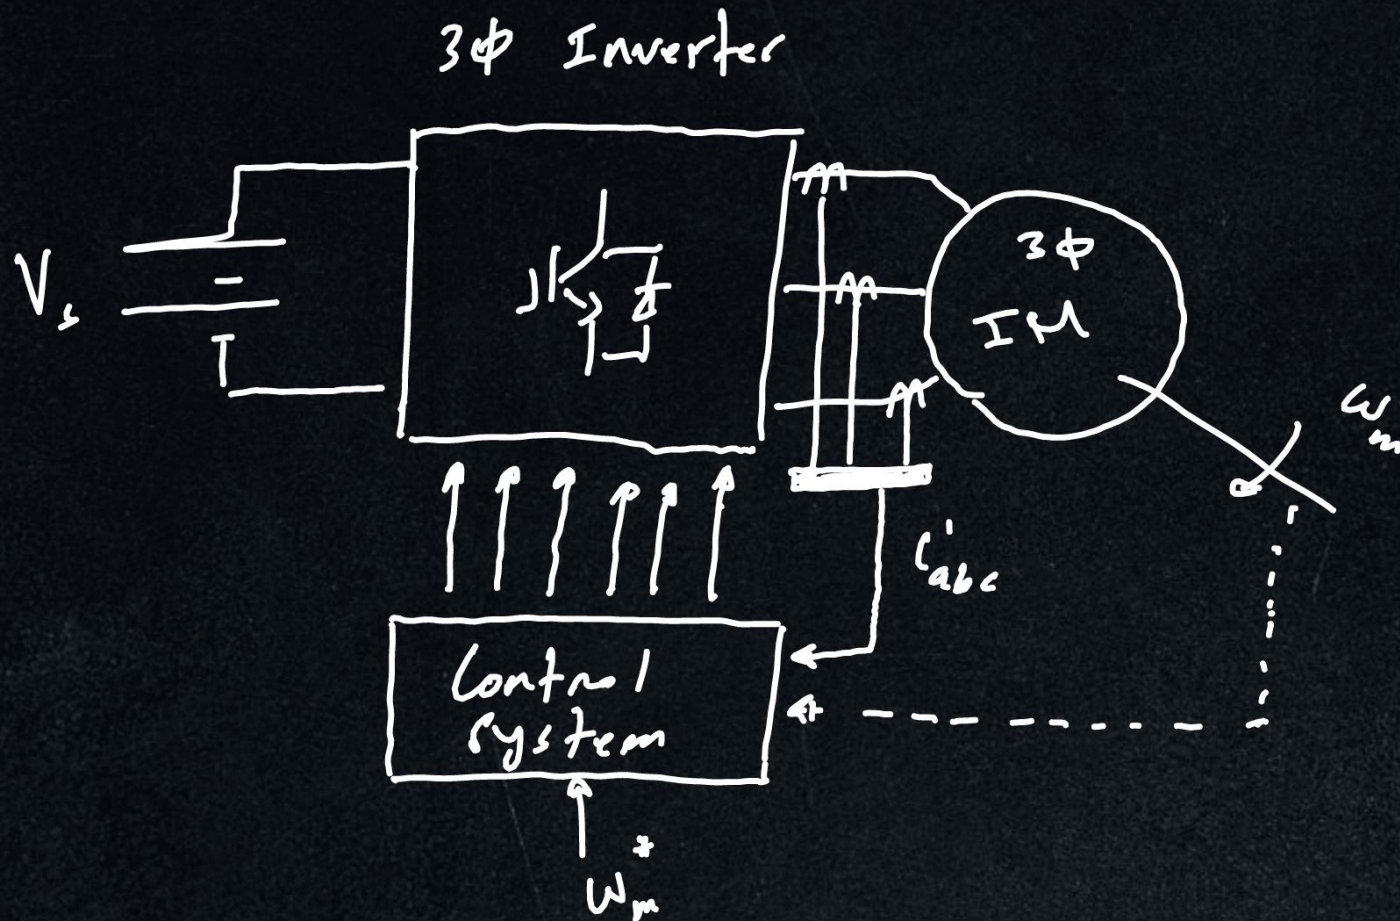 3φ Inverter
Vs
3φ
IM
ωm
iabc
Control
system
ωm*